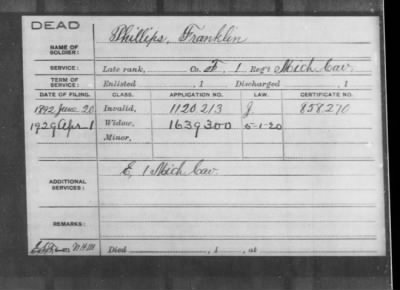 DEAD
NAME OF SOLDIER: Phillips, Franklin
SERVICE: Late rank, Co. F, 1 Reg't Mich Cav.
TERM OF SERVICE: Enlisted , 1 Discharged , 1
DATE OF FILING. CLASS. APPLICATION NO. LAW. CERTIFICATE NO.
1892 June 20 Invalid, 1120,213 J 858270
1929 Apr 1 Widow, 1639300 5-1-20
Minor,
ADDITIONAL SERVICES: E, 1 Mich Cav.
REMARKS:
Died , 1 , at